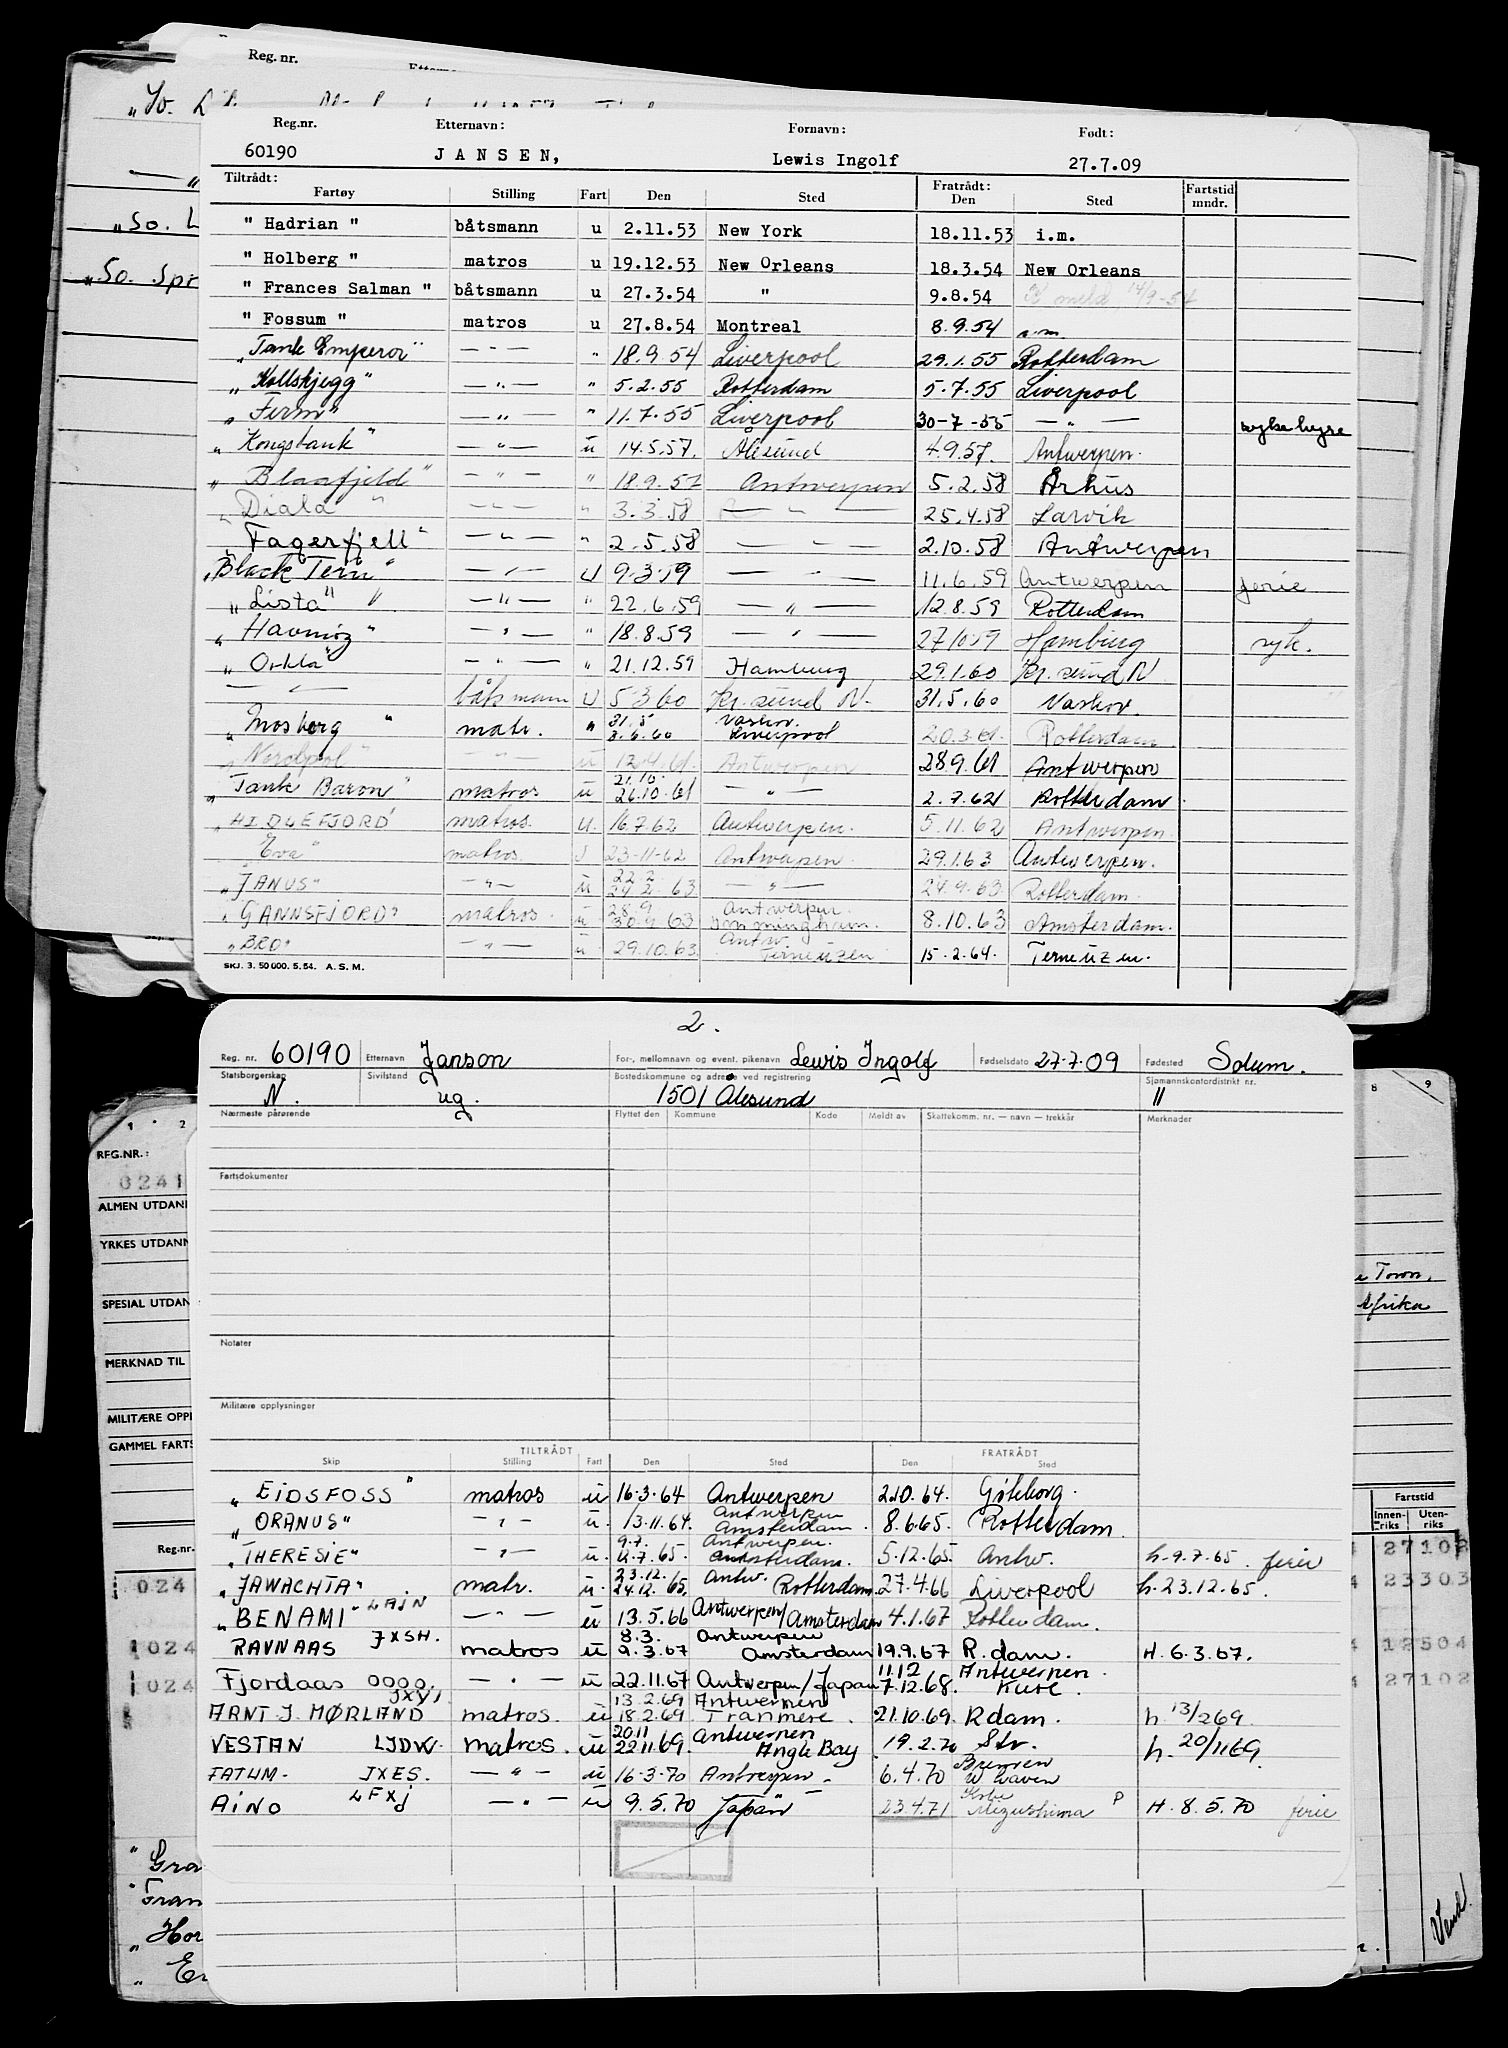 Reg. nr.
„So.
Reg.nr. Etternavn: Fornavn: Født:
60190 JANSEN, Lewis Ingolf 27.7.09
Tiltrådt: Fratrådt: Fartstid mndr.
Fartøy Stilling Fart Den Sted Den Sted
" Hadrian " båtsmann u 2.11.53 New York 18.11.53 i.m.
" Holberg " matros u 19.12.53 New Orleans 18.3.54 New Orleans
" Frances Salman " båtsmann u 27.3.54 " 9.8.54 meld 14/9-54
" Fossum " matros u 27.8.54 Montreal 8.9.54
„Tank Emperor" — " — " 18.9.54 Liverpool 29.1.55 Rotterdam
„Kollskjegg" — " — " 5.2.55 Rotterdam 5.7.55 Liverpool
„Ferm" — " — " 11.7.55 Liverpool 30-7-55 — " — sykehyre
„Kongsbank" — " — u 14.5.57. Ålesund 4.9.57. Antwerpen.
„Blaafjeld" — " — " 18.9.57 Antwerpen 5.2.58 Århus
„Diala" — " — " 3.3.58 — " — 25.4.58 Larvik
„Fagerfjell" — " — " 2.5.58 — " — 2.10.58 Antwerpen
„Black Tern" — " — u 9.3.59 — " — 11.6.59 Antwerpen ferie
„Lista" — " — " 22.6.59 — " — 12.8.59 Rotterdam
„Havmøz" — " — " 18.8.59 — " — 27 10 59 Hamburg syk.
„Orkla" — " — " 21.12.59 Hamburg 29.1.60 Kr. sund N
— " — båtsmann u 5 3 60 Kr. sund N. 31.5.60 Naskov.
„Mosberg" matr. " 31.5 3.6.60 Naskov. Liverpool 20.3.61. Rotterdam.
„Nordpol" — " — u 12.4.61. Antwerpen 28.9.61 Antwerpen
„Tank Baron" matros u 21.10. 26.10.61 — " — 2.7.62 Rotterdam.
„HIDLEFJORD" matros. u. 16.7.62 Antwerpen. 5.11.62 Antwerpen.
„Eva" matros. 23-11-62 Antwerpen. 29.1.63 Antwerpen.
„JANUS" — " — u 22.2 24.2.63 — " — 24.9.63. Rotterdam.
„GANNSFJORD" matros. u. 28.9 30.9.63 Antwerpen. Immingham. 8.10.63 Amsterdam.
„BRO" — " — u 29.10.63. Antw. Terneuzen 15.2.64. Terneuzen.
SKJ. 3. 50 000. 5. 54. A. S. M.
„So. L
„So. Spr
2.
Reg. nr. 60190 Etternavn Janson For-, mellomnavn og event. pikenavn Lewis Ingolf Fødselsdato 27.7.09 Fødested Solum.
Statsborgerskap N. Sivilstand ug. Bostedskommune og adresse ved registrering 1501 Ålesund Sjømannskontordistrikt nr. 11
Nærmeste pårørende Flyttet den Kommune Kode Meldt av Skattekomm. nr. — navn — trekkår Merknader
Fartsdokumenter
Notater
Militære opplysninger
TILTRÅDT FRATRÅDT
Skip Stilling Fart Den Sted Den Sted
„EIDSFOSS" matros u 16.3.64 Antwerpen 2.10.64. Göteborg.
„ORANUS" — " — u. 13.11.64. Antwerpen Amsterdam. 8.6.65. Rotterdam.
„THERESIE" — " — u. 9.7. 12.7.65. Antwerpen. Amsterdam. 5.12.65. Antw. h. 9.7.65. ferie
„JAWACHTA" matr. u. 23.12. 24.12.65. Antw. Rotterdam 27.4.66 Liverpool h. 23.12.65.
„BENAMI" LAJN — " — u 13.5.66 Antwerpen/Amsterdam 4.1.67 Rotterdam.
RAVNAAS JXSH. matros u 8.3. 9.3.67 Antwerpen Amsterdam 19.9.67 R.dam. H. 6.3.67.
Fjordaas OOOO — " — u 22.11.67 Antwerpen/Japan 11.12 7.12.68. Antwerpen. Kure.
ARNT J. MØRLAND JXYI matros. u 13.2.69 18.2.69 Antwerpen Tranmere. 21.10.69. Rdam. h. 13/2 69.
VESTAN LJDW. matros. u 20.11 22.11.69. Antwerpen Angle Bay 19.2.70 Stv. h. 20/11 69.
FATUM. JXES. — " — u 16.3.70 Antwerpen. 6.4.70 Bremen W haven
AINO LFXJ — " — u 9.5.70 Japan 23.4.71 Kobe Mizushima P H. 8.5.70 ferie
1 2
REG.NR.:
0241
ALMEN UTDANN
YRKES UTDANN
SPESIAL UTDAN
MERKNAD TIL
MILITÆRE OPPL
GAMMEL FARTS
Reg.-nr.
024
024
024
"Gra
"Fran
„Hor
„En
8 9
Town.
Afrika
Fartstid
Innen-riks Uten-riks
27102
23303
12504
27102
Vend